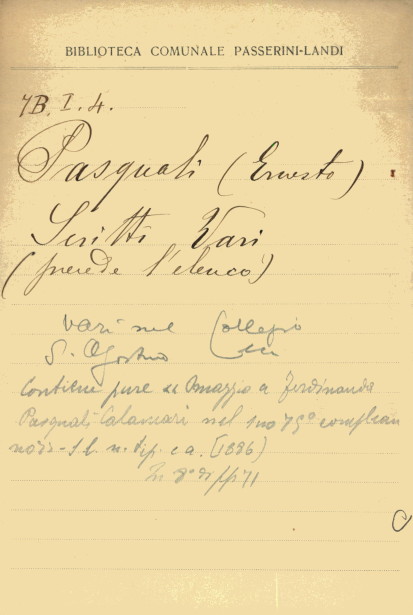 BIBLIOTECA COMUNALE PASSERINI-LANDI
7B. I. 4.
Pasquali (Ernesto)
Scritti Vari
(precede l'elenco)
Vari nel Collegio
S. Agostino
Contiene pure un Omaggio a Ferdinanda
Pasquali nel suo 75º complean
no. - S. l. n. tip. e a. [1886]
In 8º di pp 71